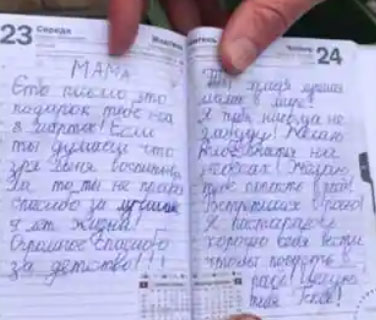 23 Середа
МАМА
Ето писмо это
подарок тебе на
8 марта! Если
ты думаеш что
зря меня воспитала
За то ты не права
спасибо за лучшии
9 лет жизни!
Огромное спасибо
за детство!!!
Четвер 24
Ты самая лучшая
мама в мире!
Я тебя никогда не
забуду! Желаю
на
небесах! Желаю
тебе попасть в рай!
Встретимся в раю!
Я постараюсь
хорошо себя вести
чтобы попасть в
рай! Целую
тебя